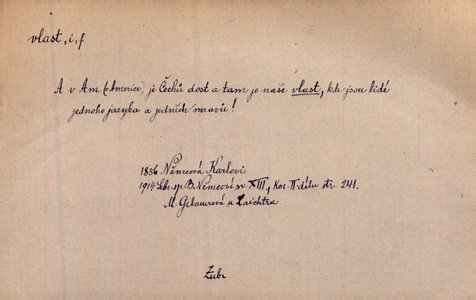 vlast, i, f
A v Am. (v Americe) je Čechů dost a tam je naše vlast, kde jsou lidé
jednoho jazyka a jedněch mravů!
1856 Němcová Karlovi
1914 Sb. sp. B. Němcové sv. XIII, Kor. II dílu str. 241.
M. Gebauerová u Laichtra
Zubr